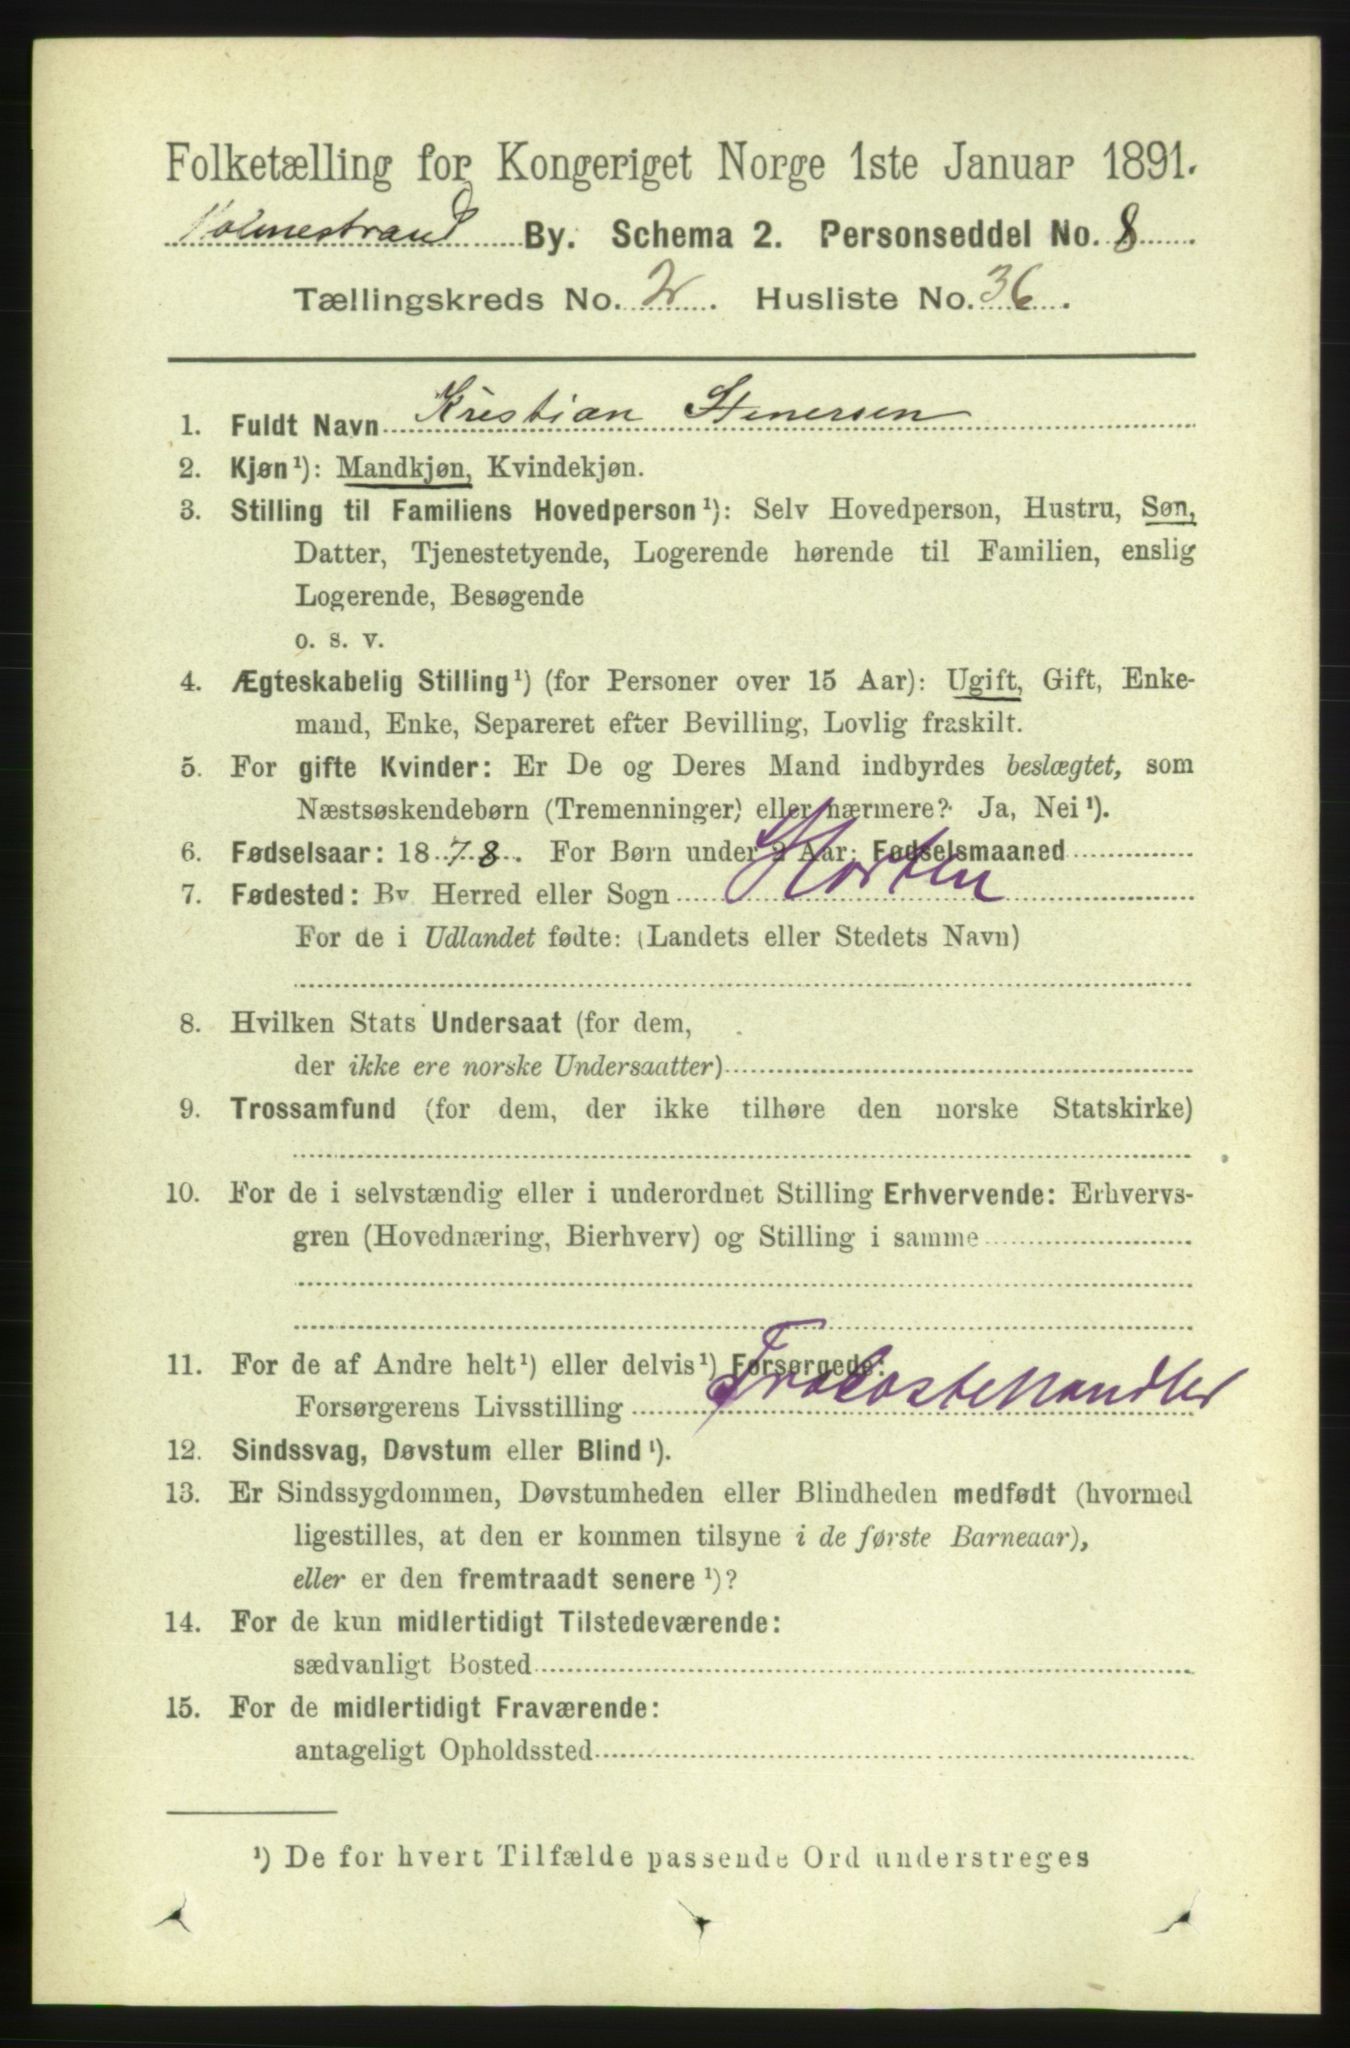 Folketælling for Kongeriget Norge 1ste Januar 1891.
Holmestrand By. Schema 2. Personseddel No. 8
Tællingskreds No. 2. Husliste No. 36.
1. Fuldt Navn Kristian Stenersen
2. Kjøn¹): Mandkjøn, Kvindekjøn.
3. Stilling til Familiens Hovedperson¹): Selv Hovedperson, Hustru, Søn,
Datter, Tjenestetyende, Logerende hørende til Familien, enslig
Logerende, Besøgende
o. s. v.
4. Ægteskabelig Stilling¹) (for Personer over 15 Aar): Ugift, Gift, Enke-
mand, Enke, Separeret efter Bevilling, Lovlig fraskilt.
5. For gifte Kvinder: Er De og Deres Mand indbyrdes beslægtet, som
Næstsøskendebørn (Tremenninger) eller nærmere? Ja, Nei¹).
6. Fødselsaar: 1878. For Børn under 2 Aar: Fødselsmaaned
7. Fødested: By Herred eller Sogn Horten
For de i Udlandet fødte: (Landets eller Stedets Navn)
8. Hvilken Stats Undersaat (for dem,
der ikke ere norske Undersaatter)
9. Trossamfund (for dem, der ikke tilhøre den norske Statskirke)
10. For de i selvstændig eller i underordnet Stilling Erhvervende: Erhvervs-
gren (Hovednæring, Bierhverv) og Stilling i samme
11. For de af Andre helt¹) eller delvis¹) Forsørgede:
Forsørgerens Livsstilling
12. Sindssvag, Døvstum eller Blind¹).
13. Er Sindssygdommen, Døvstumheden eller Blindheden medfødt (hvormed
ligestilles, at den er kommen tilsyne i de første Barneaar),
eller er den fremtraadt senere¹)?
14. For de kun midlertidigt Tilstedeværende:
sædvanligt Bosted
15. For de midlertidigt Fraværende:
antageligt Opholdssted
¹) De for hvert Tilfælde passende Ord understreges